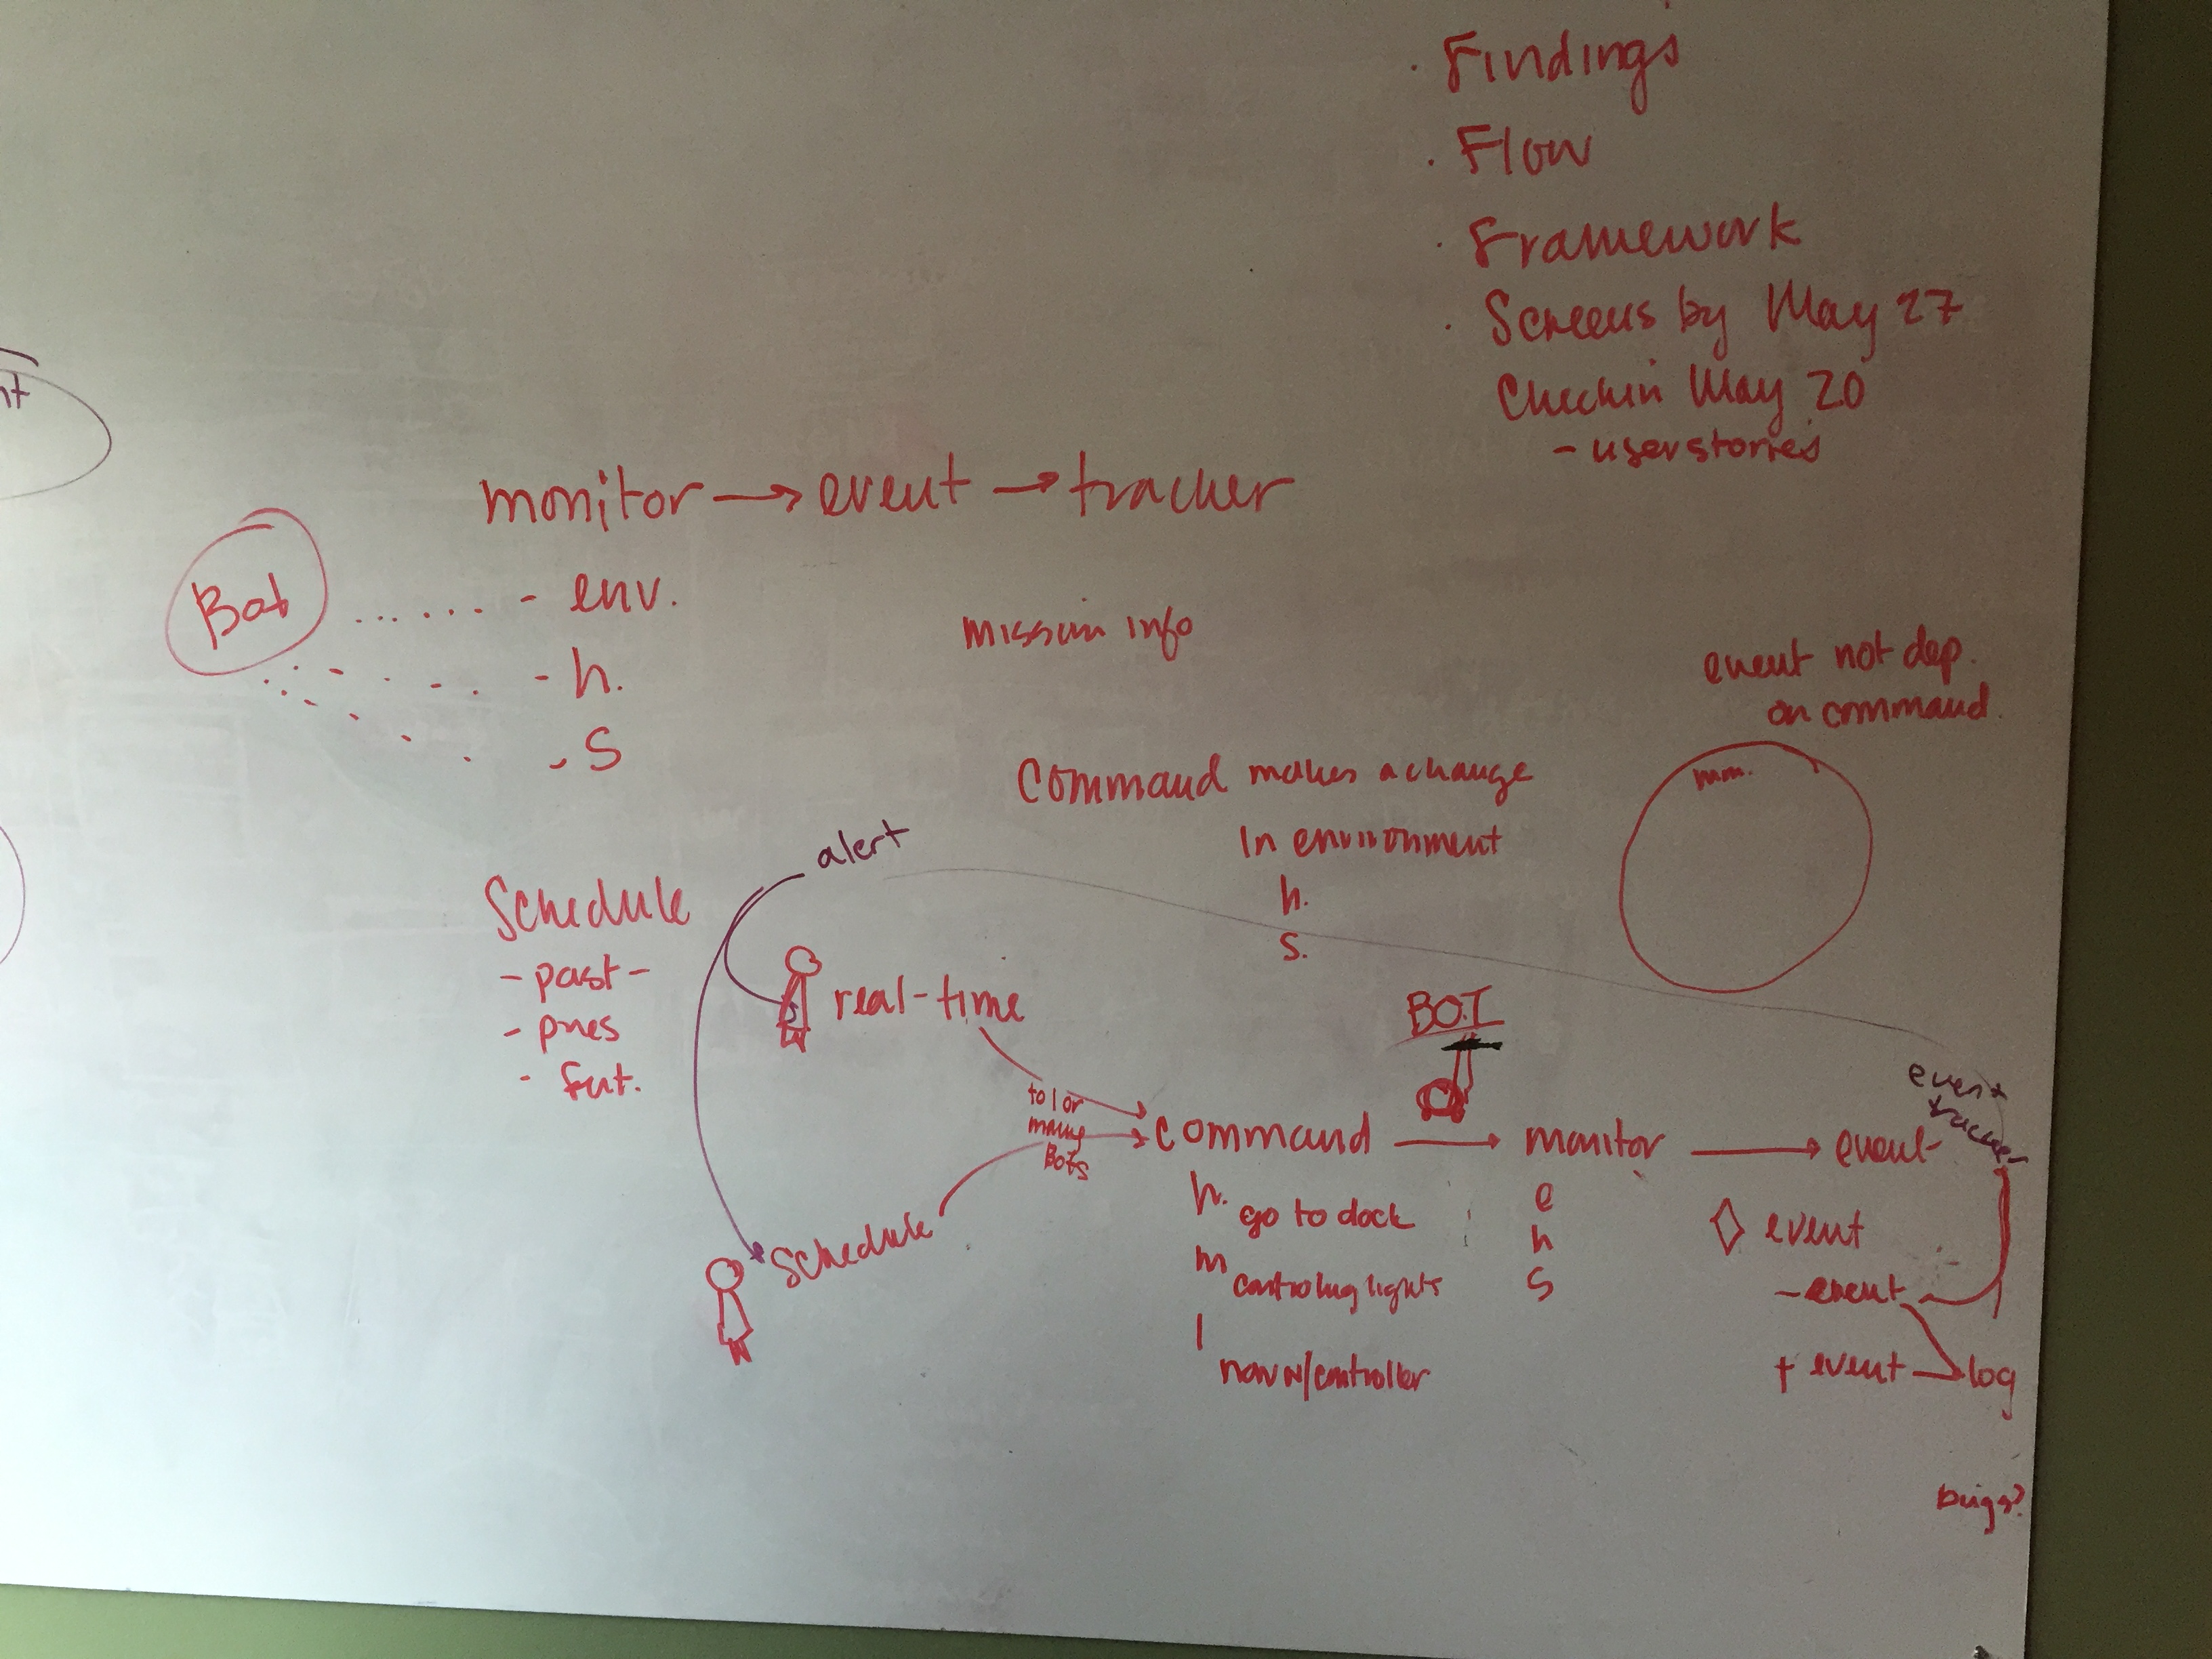 · Findings
· Flow
· Framework
· Screens by May 27
Checkin May 20
- user stories
nt
monitor → event → tracker
Bot
- env.
- h.
- S
mission info
event not dep.
on command.
mm.
Command makes a change
In environment
h.
s.
alert
Schedule
- past -
- pres
- fut.
real-time
to 1 or
many
Bots
schedule
BOT
command → monitor → event
event
tracker
h. go to dock
m controlling lights
l
nav w/controller
e
h
S
◇ event
- event
+ event
log
bugs?